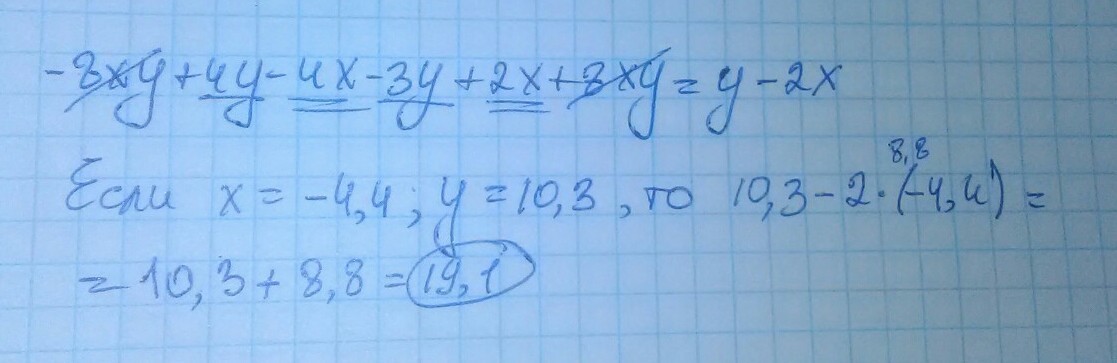 -8xy + 4y - 4x - 3y + 2x + 8xy = y - 2x
8,8
Если x = -4,4 ; y = 10,3 , то 10,3 - 2 · (-4,4) =
= 10,3 + 8,8 = 19,1